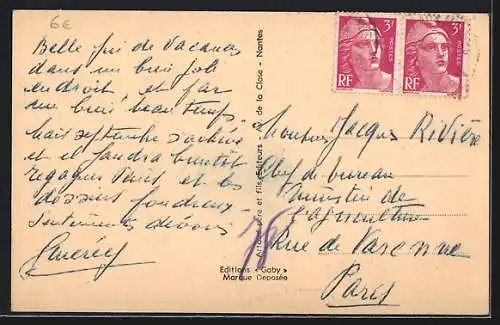 6€
Belle fin de vacances
dans un bien joli
endroit et par
un bien beau temps
Mais septembre s'achève
et il faudra bientôt
regagner Paris et les
dossiers
Sentiments dévoués
3F 3F
POSTES POSTES
RF RF
Artaud père et fils, Editeurs - Av. de la Close - Nantes
Editions « Gaby »
Marque Deposée
Monsieur Jacques Rivière
Chef de bureau
Ministère de
l'agriculture
Rue de Varenne
Paris